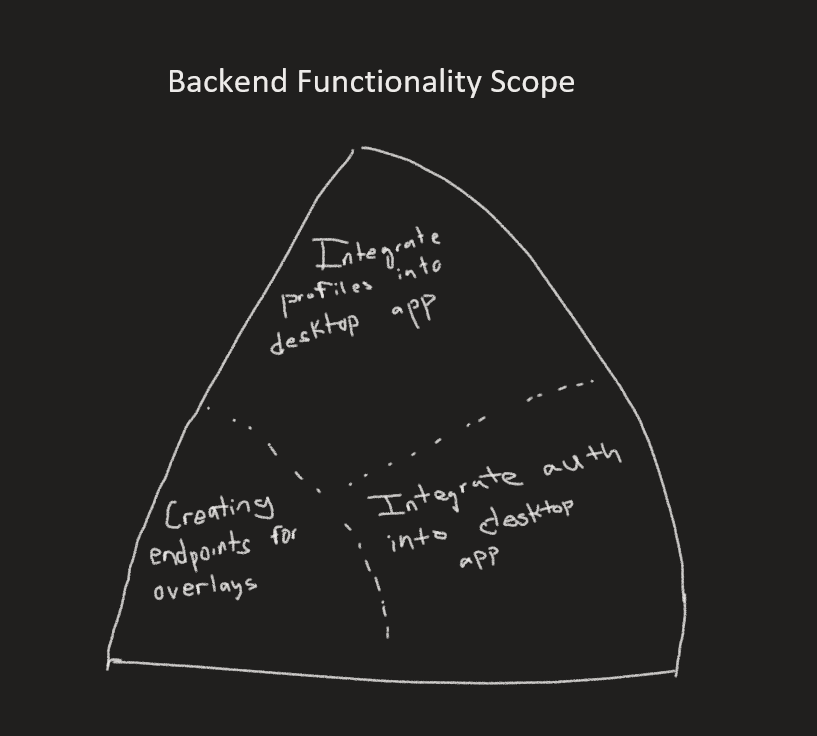 Backend Functionality Scope
Integrate
profiles into
desktop app
Creating
endpoints for
overlays
Integrate auth
into desktop
app